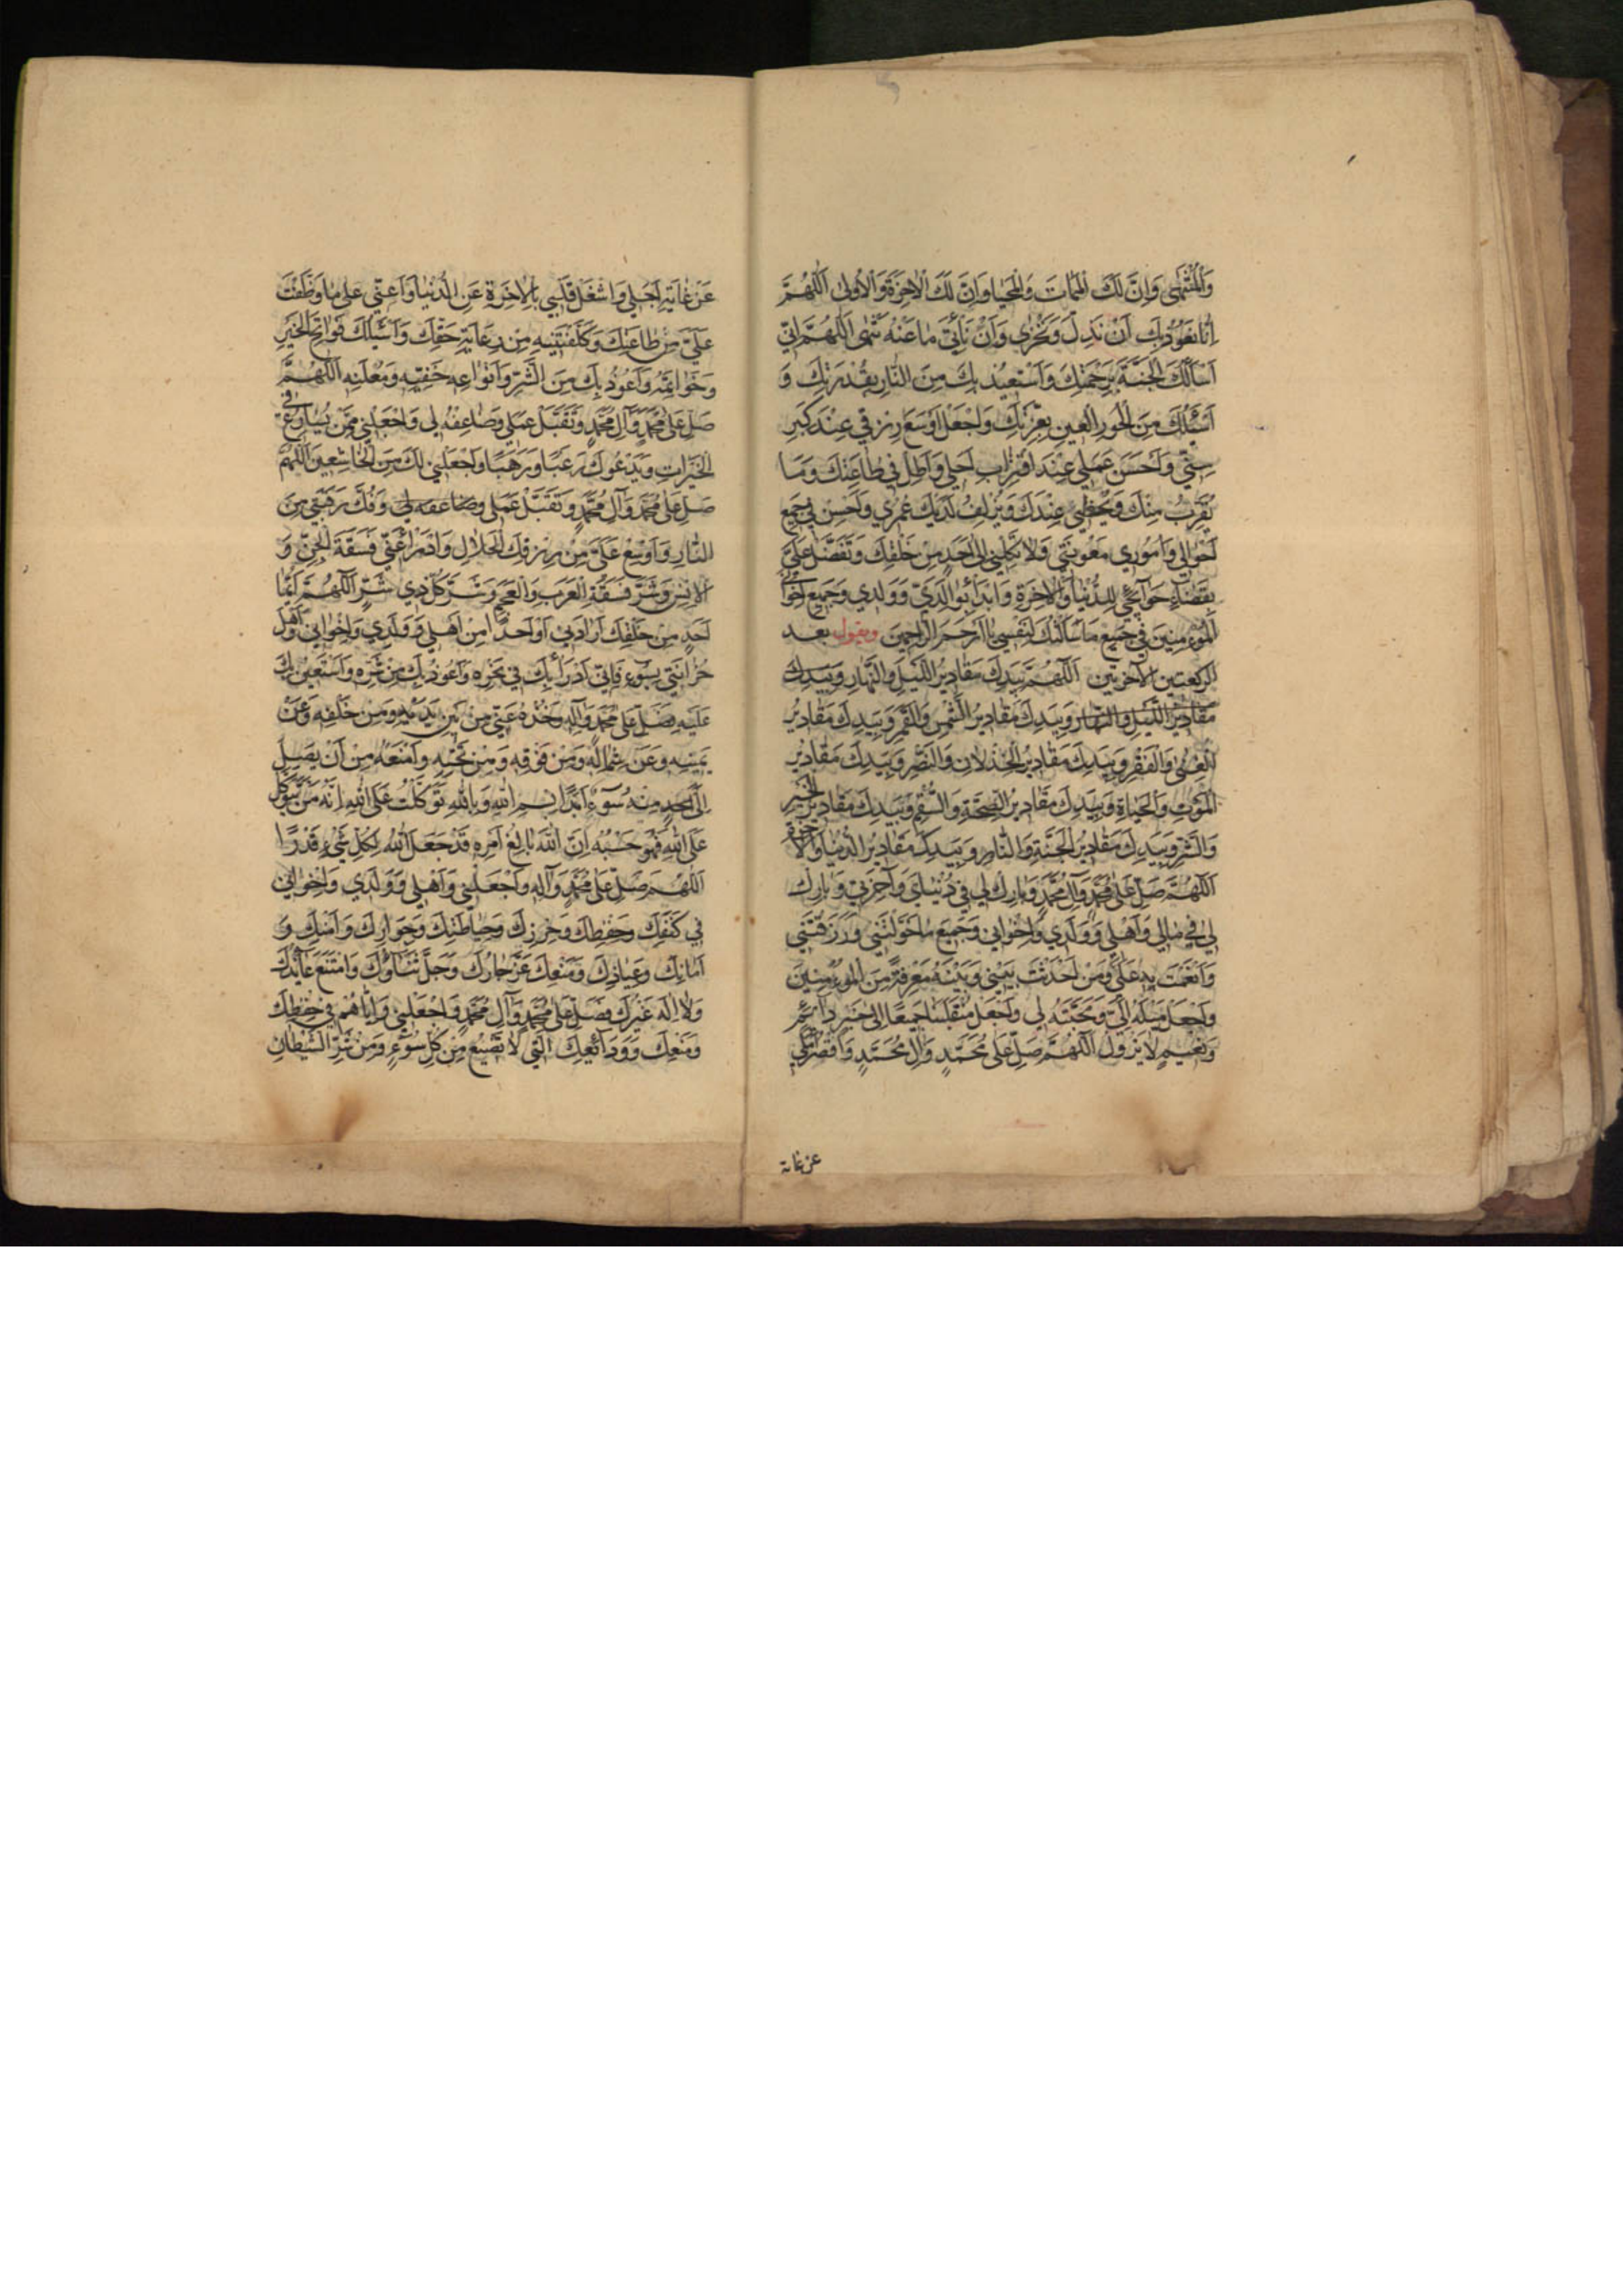 وَالْمُنْتَهٰى وَاِنَّ لَكَ الْمَمَاتَ وَالْمَحْيَا وَاِنَّ لَكَ الْاٰخِرَةَ وَالْاُولٰى اَللّٰهُمَّ
اِنَّا نَعُوذُ بِكَ اَنْ نَذِلَّ وَنَخْزٰى وَاَنْ نَأْتِيَ مَا عَنْهُ تَنْهٰى اَللّٰهُمَّ اِنّي
اَسْاَلُكَ الْجَنَّةَ بِرَحْمَتِكَ وَاَسْتَعِيذُ بِكَ مِنَ النَّارِ بِقُدْرَتِكَ وَ
اَسْئَلُكَ مِنَ الْحُورِ الْعِينِ بِعِزَّتِكَ وَاجْعَلْ اَوْسَعَ رِزْقي عِنْدَ كِبَرِ
سِنّي وَاَحْسَنَ عَمَلي عِنْدَ اقْتِرَابِ اَجَلي وَاَطِلْ في طَاعَتِكَ وَمَا
يُقَرِّبُ مِنْكَ وَيُحْظي عِنْدَكَ وَيُزْلِفُ لَدَيْكَ عُمُري وَاَحْسِنْ في جَميعِ
اَحْوَالي وَاُمُوري مَعُونَتي وَلَا تَكِلْني اِلٰى اَحَدٍ مِنْ خَلْقِكَ وَتَفَضَّلْ عَلَيَّ
بِقَضَاءِ حَوَائِجي لِلدُّنْيَا وَالْاٰخِرَةِ وَابْدَأْ بِوَالِدَيَّ وَوَلَدي وَجَميعِ اِخْوَاني
الْمُؤْمِنينَ في جَميعِ مَا سَاَلْتُكَ لِنَفْسي يَا اَرْحَمَ الرَّاحِمينَ ويقول بعد
الركعتين الآخرتين اَللّٰهُمَّ بِيَدِكَ مَقَاديرُ اللَّيْلِ وَالنَّهَارِ وَبِيَدِكَ
مَقَاديرُ اللَّيْلِ وَالنَّهَارِ وَبِيَدِكَ مَقَاديرُ الشَّمْسِ وَالْقَمَرِ وَبِيَدِكَ مَقَاديرُ
الْغِنٰى وَالْفَقْرِ وَبِيَدِكَ مَقَاديرُ الْخِذْلَانِ وَالنَّصْرِ وَبِيَدِكَ مَقَاديرُ
الْمَوْتِ وَالْحَيَاةِ وَبِيَدِكَ مَقَاديرُ الصِّحَّةِ وَالسُّقْمِ وَبِيَدِكَ مَقَاديرُ الْخَيْرِ
وَالشَّرِّ وَبِيَدِكَ مَقَاديرُ الْجَنَّةِ وَالنَّارِ وَبِيَدِكَ مَقَاديرُ الدُّنْيَا وَالْاٰخِرَةِ
اَللّٰهُمَّ صَلِّ عَلٰى مُحَمَّدٍ وَآلِ مُحَمَّدٍ وَبَارِكْ لي في دُنْيَايَ وَآخِرَتي وَبَارِكْ
لي في مَالي وَاَهْلي وَوَلَدي وَاِخْوَاني وَجَميعِ مَا خَوَّلْتَني وَرَزَقْتَني
وَاَنْعَمْتَ بِهِ عَلَيَّ وَمَنْ اَحْدَثْتَ بَيْني وَبَيْنَهُ مَعْرِفَةً مِنَ الْمُؤْمِنينَ
وَاجْعَلْ مَيْلَهُ اِلَيَّ وَمَحَبَّتَهُ لي وَاجْعَلْ مُنْقَلَبَنَا جَميعًا اِلٰى خَيْرٍ دَائِمٍ
وَنَعيمٍ لَا يَزُولُ اَللّٰهُمَّ صَلِّ عَلٰى مُحَمَّدٍ وَآلِ مُحَمَّدٍ وَاقْصُرْ اَمَلي
عن غاية
عَنْ غَايَةِ اَجَلي وَاشْغَلْ قَلْبي بِالْاٰخِرَةِ عَنِ الدُّنْيَا وَاَعِنّي عَلٰى مَا وَظَّفْتَ
عَلَيَّ مِنْ طَاعَتِكَ وَكَلَّفْتَنيهِ مِنْ رِعَايَةِ حَقِّكَ وَاَسْئَلُكَ فَوَاتِحَ الْخَيْرِ
وَخَوَاتِمَهُ وَاَعُوذُ بِكَ مِنَ الشَّرِّ وَاَنْوَاعِهِ خَفِيِّهِ وَمُعْلَنِهِ اَللّٰهُمَّ
صَلِّ عَلٰى مُحَمَّدٍ وَآلِ مُحَمَّدٍ وَتَقَبَّلْ عَمَلي وَضَاعِفْهُ لي وَاجْعَلْني مِمَّنْ يُسَارِعُ في
الْخَيْرَاتِ وَيَدْعُوكَ رَغَبًا وَرَهَبًا وَاجْعَلْني لَكَ مِنَ الْخَاشِعينَ اَللّٰهُمَّ
صَلِّ عَلٰى مُحَمَّدٍ وَآلِ مُحَمَّدٍ وَتَقَبَّلْ عَمَلي وضاعفه لي وَفُكَّ رَقَبَتي مِنَ
النَّارِ وَاَوْسِعْ عَلَيَّ مِنْ رِزْقِكَ الْحَلَالِ وَادْرَأْ عَنّي فَسَقَةَ الْجِنِّ وَ
الْاِنْسِ وَشَرَّ فَسَقَةِ الْعَرَبِ وَالْعَجَمِ وَشَرَّ كُلِّ ذي شَرٍّ اَللّٰهُمَّ اَيُّمَا
اَحَدٍ مِنْ خَلْقِكَ اَرَادَني اَوْ اَحَدًا مِنْ اَهْلي وَوَلَدي وَاِخْوَاني وَاَهْلِ
حُزَانَتي بِسُوءٍ فَاِنّي اَدْرَأُ بِكَ في نَحْرِهِ وَاَعُوذُ بِكَ مِنْ شَرِّهِ وَاَسْتَعينُ بِكَ
عَلَيْهِ فَصَلِّ عَلٰى مُحَمَّدٍ وَآلِهِ وَخُذْهُ عَنّي مِنْ بَيْنِ يَدَيْهِ وَمِنْ خَلْفِهِ وَعَنْ
يَمينِهِ وَعَنْ شِمَالِهِ وَمِنْ فَوْقِهِ وَمِنْ تَحْتِهِ وَامْنَعْهُ مِنْ اَنْ يَصِلَ
اِلَيَّ مِنْهُ سُوءٌ اَبَدًا بِسْمِ اللهِ وَبِاللهِ تَوَكَّلْتُ عَلَى اللهِ اِنَّهُ مَنْ يَتَوَكَّلْ
عَلَى اللهِ فَهُوَ حَسْبُهُ اِنَّ اللهَ بَالِغُ اَمْرِهِ قَدْ جَعَلَ اللهُ لِكُلِّ شَيْءٍ قَدْرًا
اَللّٰهُمَّ صَلِّ عَلٰى مُحَمَّدٍ وَآلِهِ وَاجْعَلْني وَاَهْلي وَوَلَدي وَاِخْوَاني
في كَنَفِكَ وَحِفْظِكَ وَحِرْزِكَ وَحِيَاطَتِكَ وَجِوَارِكَ وَاَمْنِكَ وَ
اَمَانِكَ وَعِيَاذِكَ وَمَنْعِكَ عَزَّ جَارُكَ وَجَلَّ ثَنَاؤُكَ وَامْتَنَعَ عَائِذُكَ
وَلَا اِلٰهَ غَيْرُكَ فَصَلِّ عَلٰى مُحَمَّدٍ وَآلِ مُحَمَّدٍ وَاجْعَلْني وَاِيَّاهُمْ في حِفْظِكَ
وَمَنْعِكَ وَوَدَائِعِكَ الَّتي لَا تَضيعُ مِنْ كُلِّ سُوءٍ وَمِنْ شَرِّ الشَّيْطَانِ